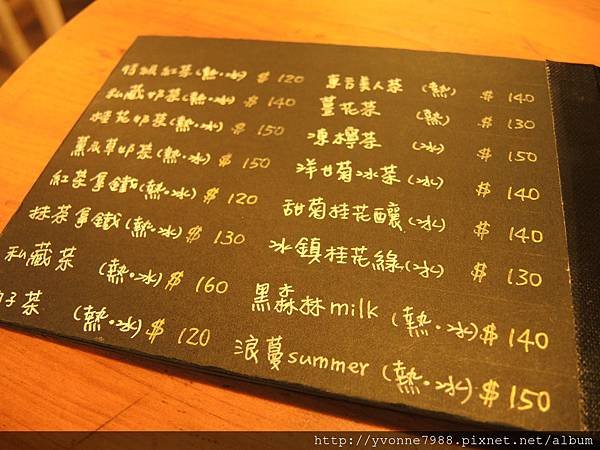 特級紅茶(熱·冰) $ 120
私藏奶茶(熱·冰) $ 140
桂花奶茶(熱·冰) $ 150
薰衣草奶茶(熱·冰) $ 150
紅茶拿鐵(熱·冰) $ 120
抹茶拿鐵(熱·冰) $ 130
私藏茶 (熱·冰) $ 160
子茶 (熱·冰) $ 120
東方美人茶 (熱) $ 140
薑花茶 (熱) $ 130
凍檸茶 (冰) $ 150
洋甘菊冰茶(冰) $ 140
甜菊桂花釀(冰) $ 140
冰鎮桂花綠(冰) $ 130
黑森林milk (熱·冰) $ 140
浪蔓summer (熱·冰) $ 150
http://yvonne7988.pixnet.net/album